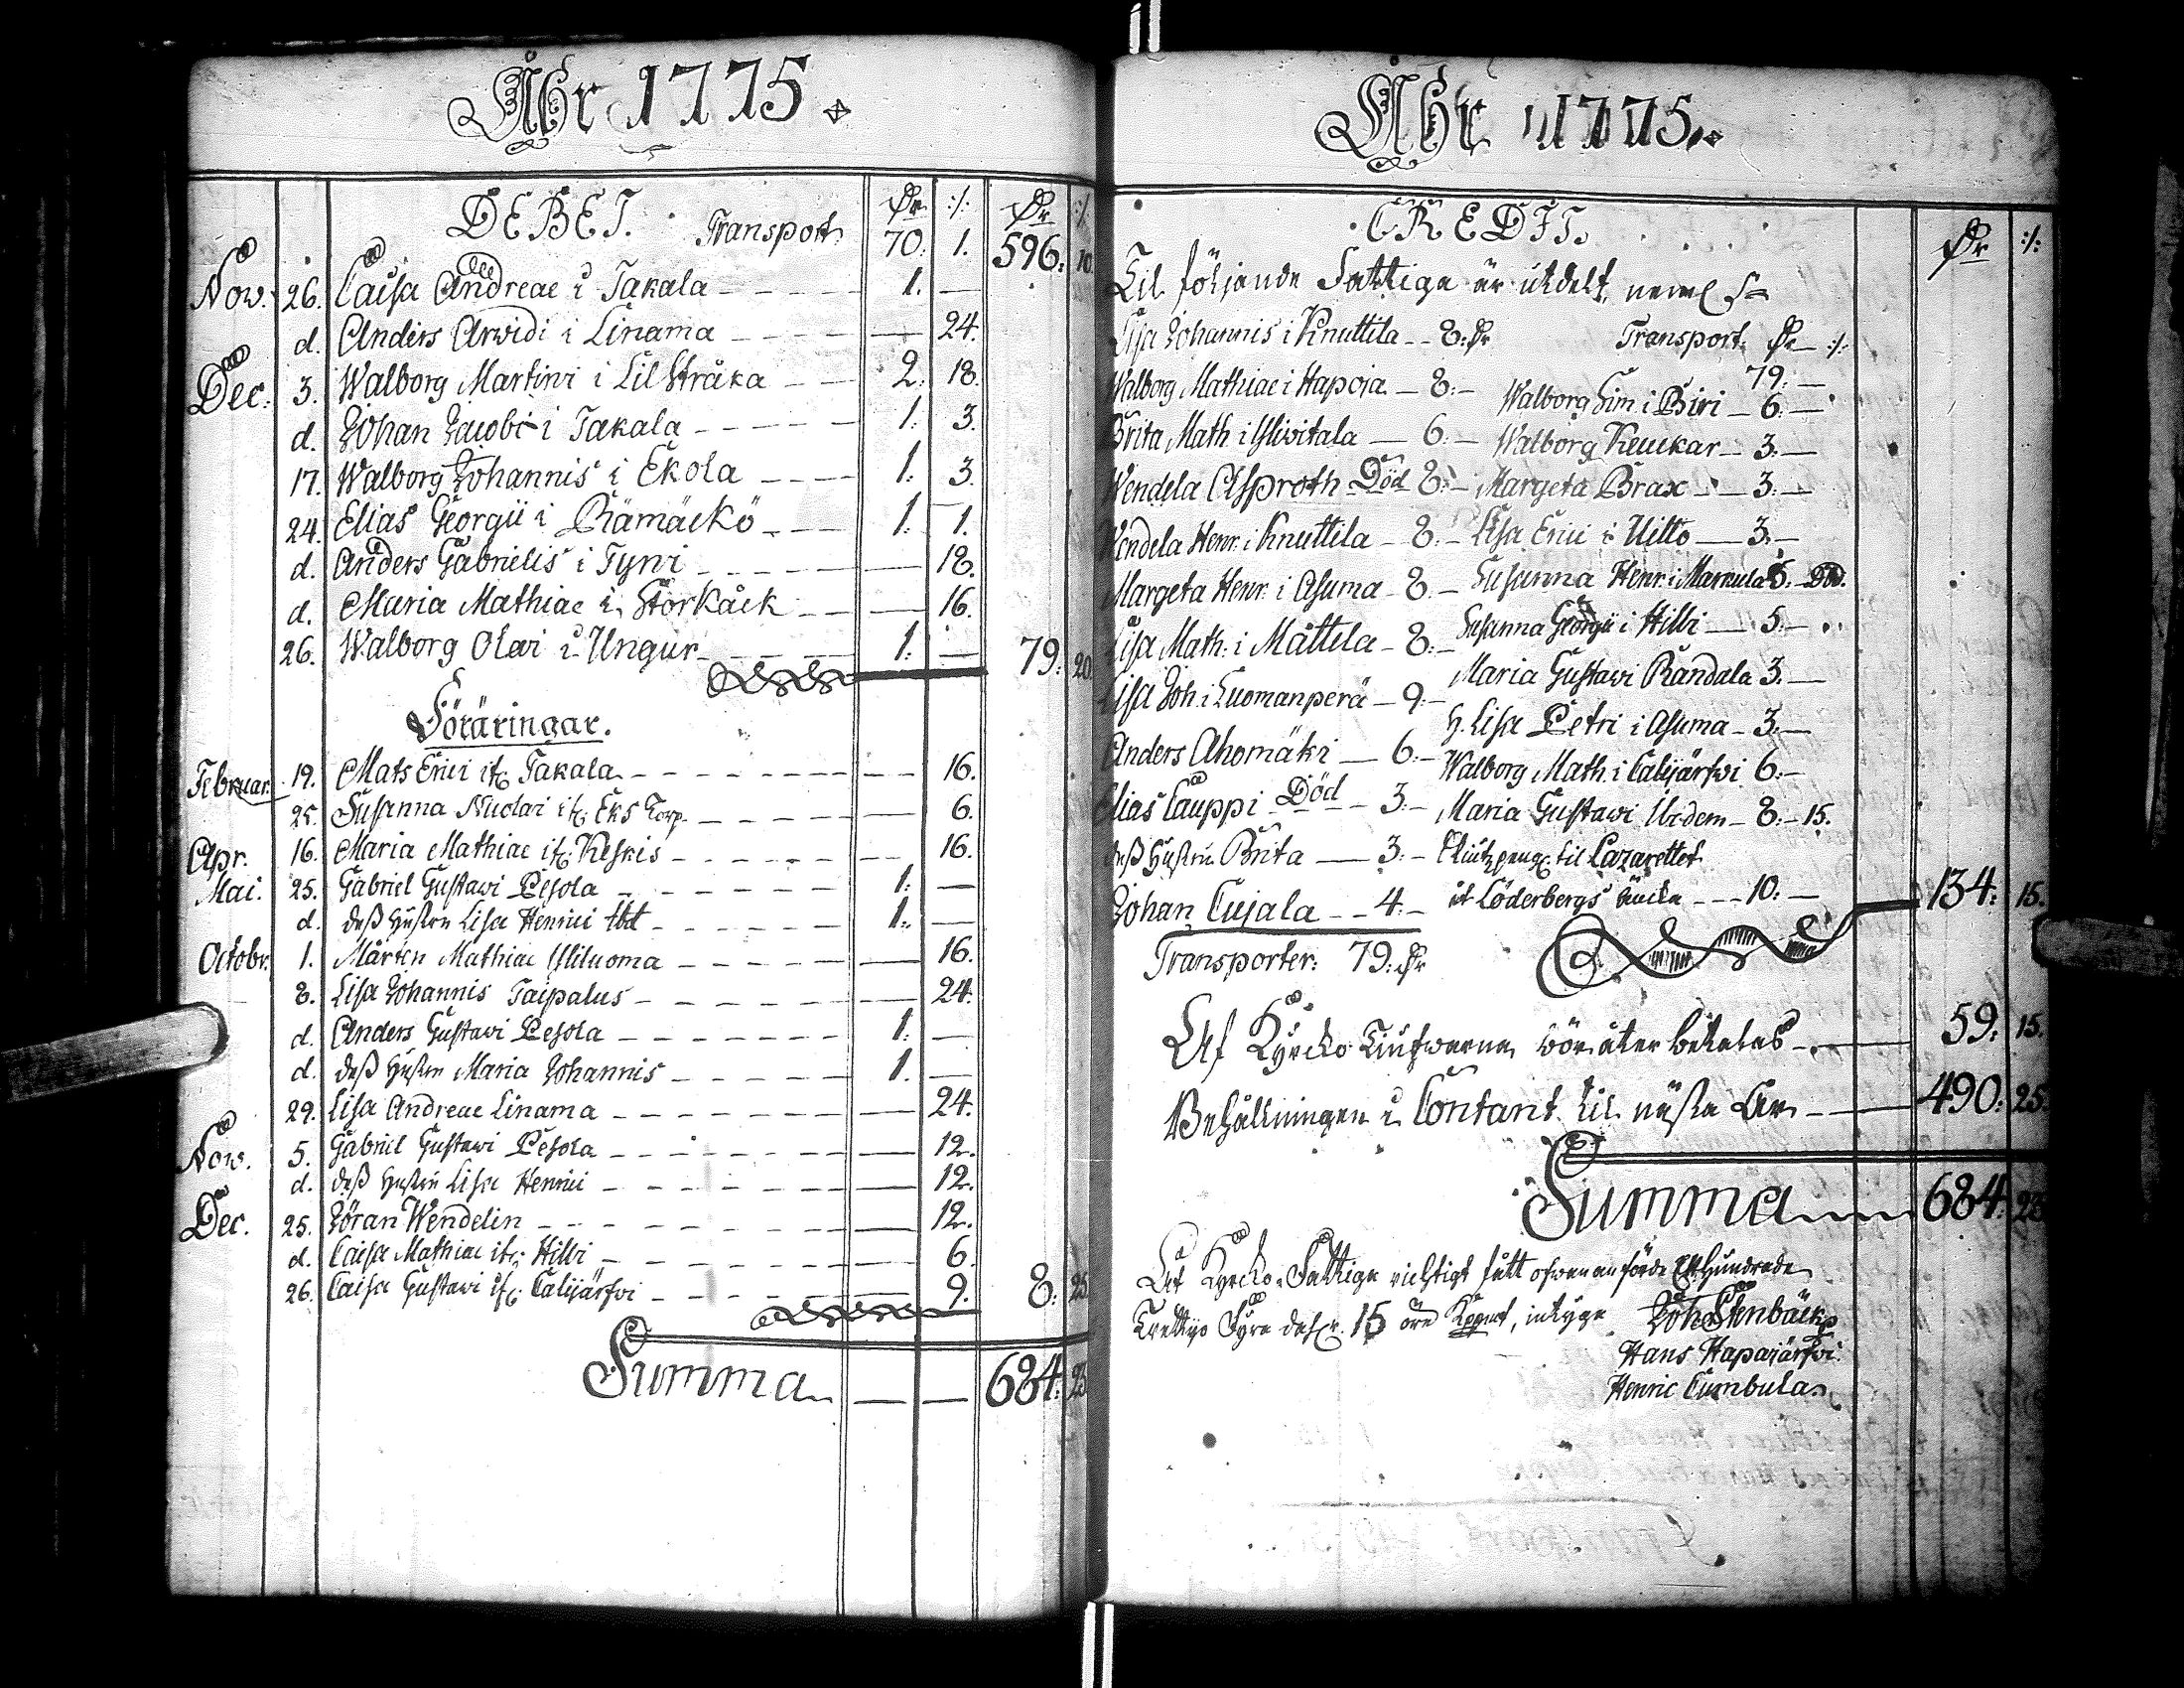 Åhr 1775.
DEBET. Transport 70: 1. 596: 10.
Nov. 26. Caisa Andreae i Takala 1. —
d. Anders Arvidi i Linama — 24.
Dec: 3. Walborg Martini i Lil Stråka 2: 18.
d. Johan Jacobi i Takala 1: 3.
17. Walborg Johannis i Ekola 1: 3.
24. Elias Georgii i Rämäckö 1: 1.
d. Anders Gabrielis i Tyni — 18.
d. Maria Mathiae i Storkåck — 16.
26. Walborg Olai i Ungur 1: — 79: 20.
Föräringar.
Februar. 19. Mats Erici ifr. Takala — 16.
25. Susanna Nicolai ifr. Eks Torp. — 6.
Apr. 16. Maria Mathiae ifr. Keskis — 16.
Mai. 25. Gabriel Gustavi Pesola 1: —
d. dess hustru Lisa Henrici ibd 1: —
Octobr. 1. Mårten Mathiae Yliluoma — 16.
8. Lisa Johannis Taipalus — 24.
d. Anders Gustavi Pesola 1: —
d. dess hustru Maria Johannis 1. —
29. Lisa Andreae Linama — 24.
Nov. 5. Gabriel Gustavi Pesola — 12.
d. dess hustru Lisa Henrici — 12.
Dec. 25. Jöran Wendelin — 12.
d. Caisa Mathiae ifr. Hilli — 6.
26. Caisa Gustavi ifr. Calijärfvi — 9. 8: 25.
Summa — — 684: 23
Åhr 1775.
CREDIT.
Til följande Fattige är utdelt, neml
Lisa Johannis i Knuttila 8:
Walborg Mathiae i Hapoja 8:
Brita Math. i Ylivitala 6:
Wendela Asproth Död 8:
Wendela Henr. i Knuttila 8:
Margeta Henr. i Asuma 8.
Lisa Math. i Mattila 8:
Lisa Joh. i Luomanperä 9.
Anders Ahomäki 6:
Elias Cauppi Död 3:
dess hustru Brita 3:
Johan Cujala 4:
Transporter: 79:
Transport.
79: —
Walborg Sim. i Biri 6: —
Walborg Keuckar 3: —
Margeta Brax 3: —
Lisa Erici i Uitto 3: —
Susanna Henr. i Markula 5: Död.
Susanna Georgii i Hilli 5:
Maria Gustavi Randala 3. —
H. Lisa Petri i Asuma 3: —
Walborg Math. i Calijärfvi 6:
Maria Gustavi 8: 15.
til Lazarettet
Löderbergs 10: — 134: 15.
Af Kyrcko bör åter betalas 59: 15.
Behållningen i Contant til nästa år 490: 25.
Summa 684: 23
Af Kyrcko Fattige richtigt fått ofwananförde Ett Hundrade
Trettijo Fyra dal. 15 öre Kppmt, intyga Joh. Stenbäck
Hans Hapajärfvi
Henric Cumbula